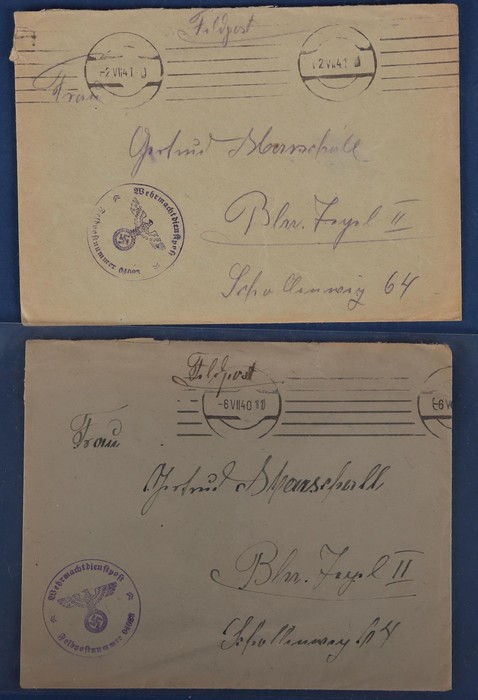 Feldpost
-2.VII.41.
-2.VII.41.
Frau
Gertrud Marschall
Wehrmachtdienstpost
Feldpostnummer
Bln. Tegel II
Schollenweg 64
Feldpost
-6.VII.40.
Frau
Gertrud Marschall
Wehrmachtdienstpost
Feldpostnummer
Bln. Tegel II
Schollenweg 64